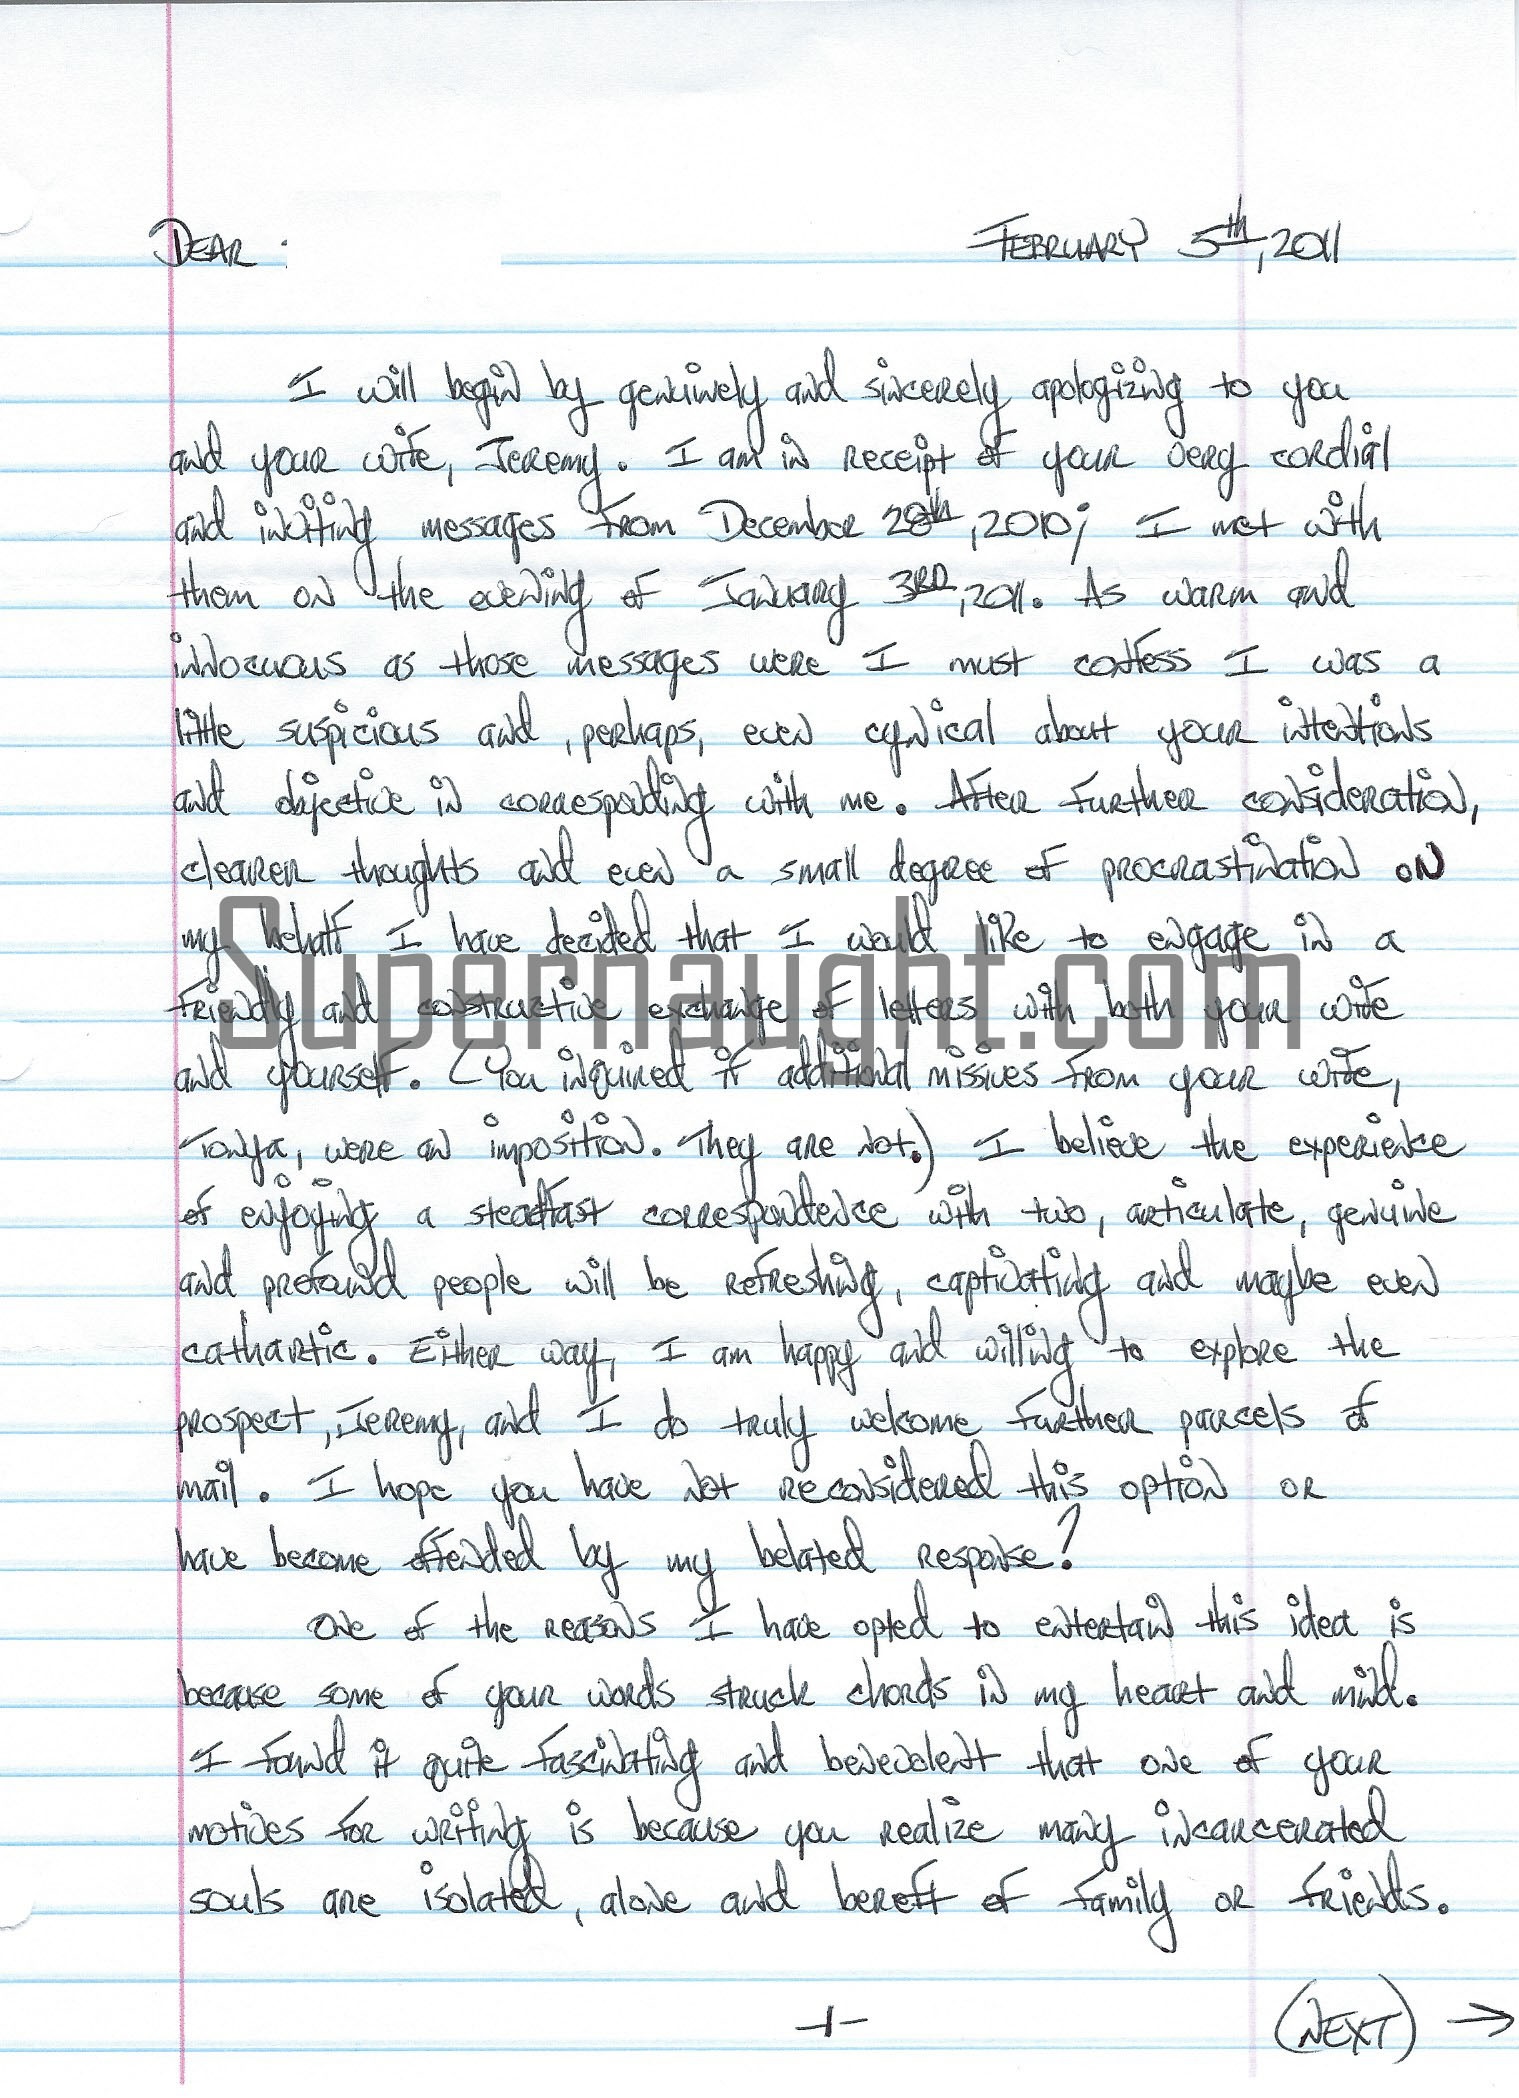 DEAR FEBRUARY 5th, 2011
I will begin by genuinely and sincerely apologizing to you
and your wife, Jeremy. I am in receipt of your very cordial
and inviting messages from December 28th, 2010; I met with
them on the evening of January 3RD, 2011. As warm and
innocuous as those messages were I must confess I was a
little suspicious and, perhaps, even cynical about your intentions
and objective in corresponding with me. After further consideration,
clearer thoughts and even a small degree of procrastination on
my behalf I have decided that I would like to engage in a
Supernaught.com
friendly and constructive exchange of letters with both your wife
and yourself. (You inquired if additional missives from your wife,
Tonya, were an imposition. They are not.) I believe the experience
of enjoying a steadfast correspondence with two, articulate, genuine
and profound people will be refreshing, captivating and maybe even
cathartic. Either way, I am happy and willing to explore the
prospect, Jeremy, and I do truly welcome further parcels of
mail. I hope you have not reconsidered this option or
have become offended by my belated response?
One of the reasons I have opted to entertain this idea is
because some of your words struck chords in my heart and mind.
I found it quite fascinating and benevolent that one of your
motives for writing is because you realize many incarcerated
souls are isolated, alone and bereft of family or friends.
-1- (NEXT) →